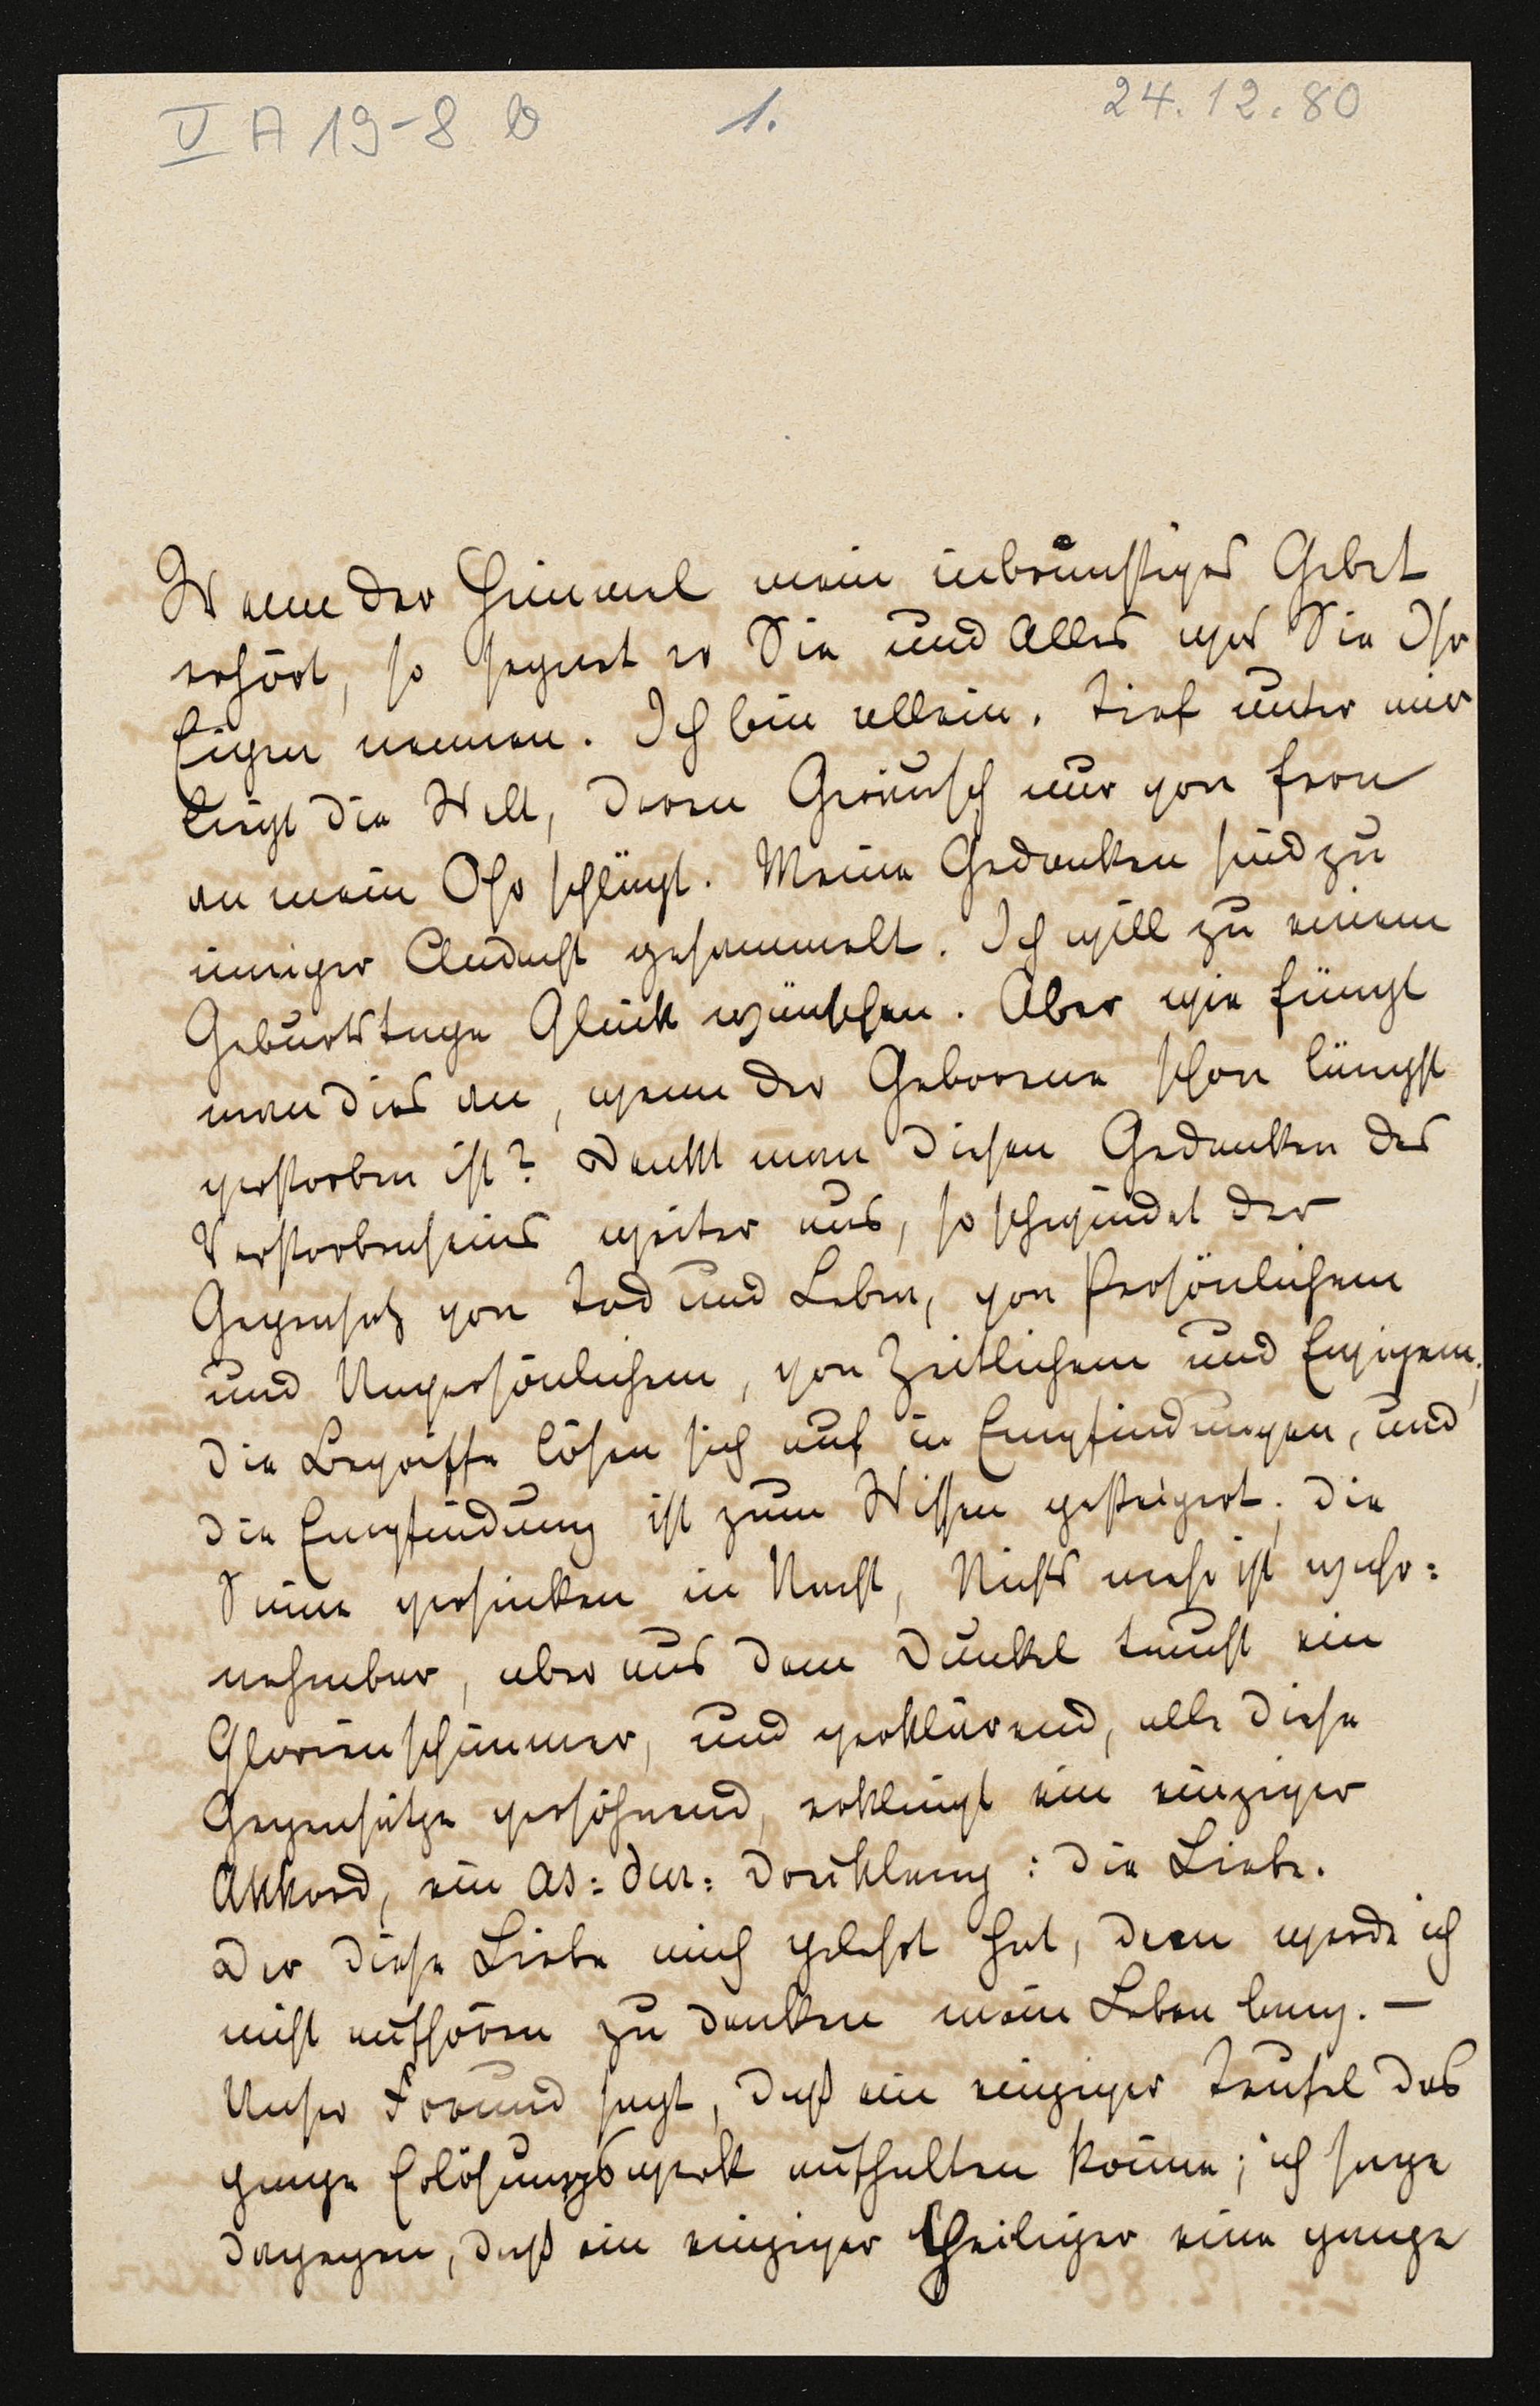 V A 19-8 b
1.
24.12.80
Wenn der Himmel mein inbrünstiges Gebet
erhört, so segnet er Sie und Alles was Sie Ihr
Eigen nennen. Ich bin allein. Tief unter mir
liegt die Welt, deren Geräusch nur von fern
an mein Ohr schlägt. Meine Gedanken sind zu
inniger Andacht gesammelt. Ich will zu einem
Geburtstage Glück wünschen. Aber wie fängt
man dies an, wenn der Geborene schon längst
verstorben ist? Denkt man diesen Gedanken des
Verstorbenseins weiter aus, so schwindet der
Gegensatz von Tod und Leben, von Persönlichem
und Unpersönlichem, von Zeitlichem und Ewigem;
die Begriffe lösen sich auf in Empfindungen, und
die Empfindung ist zum Wissen gesteigert; die
Sinne versinken in Nacht, Nichts mehr ist wahr=
nehmbar, aber aus dem Dunkel taucht ein
Glorienschimmer, und verklärend, alle diese
Gegensätze versöhnend, erklingt ein einziger
Akkord, ein As=dur=Dreiklang: die Liebe.
Der diese Liebe mich gelehrt hat, dem werde ich
nicht aufhören zu danken mein Leben lang. —
Unser Freund sagt, daß ein einziger Teufel das
ganze Erlösungswerk aufhalten könne; ich sage
dagegen, daß ein einziger Heiliger eine ganze